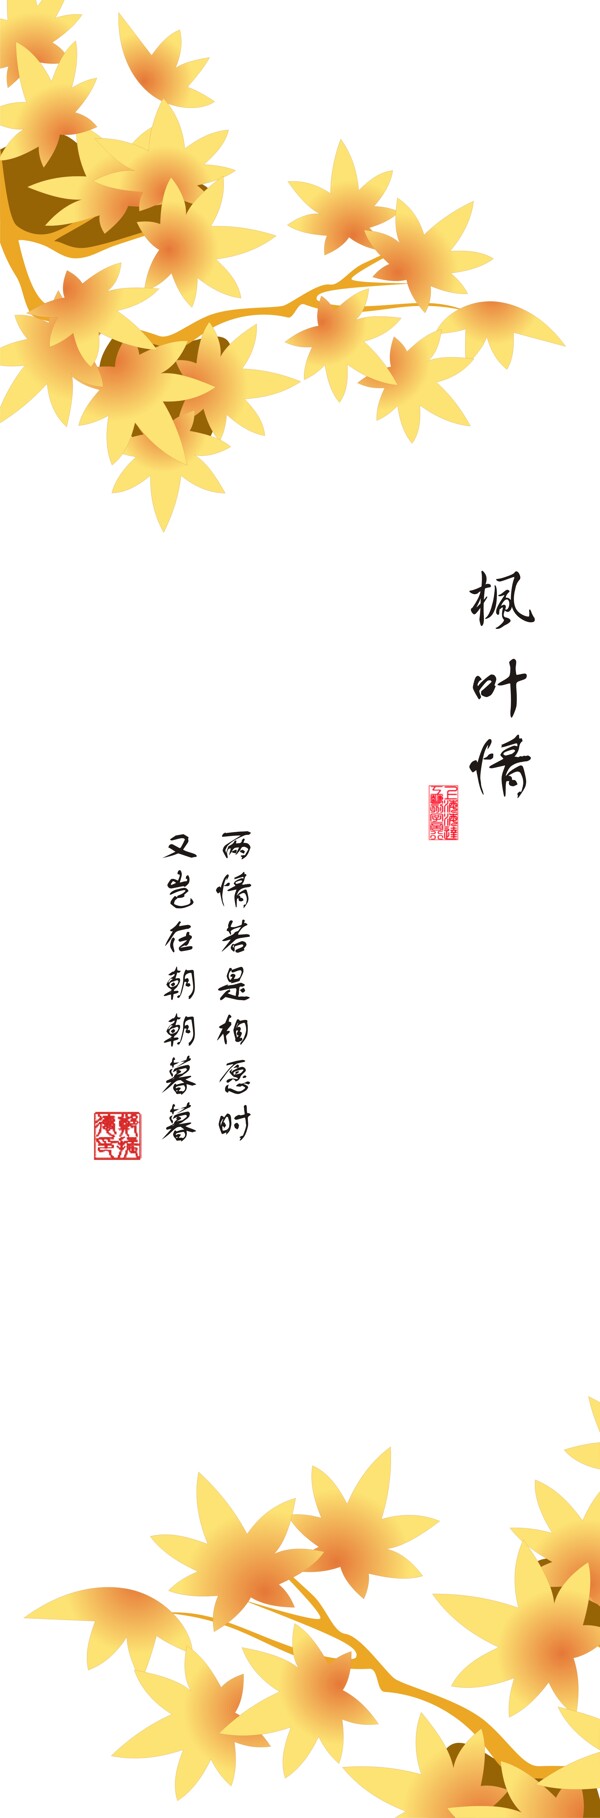 枫叶情
两情若是相愿时
又岂在朝朝暮暮